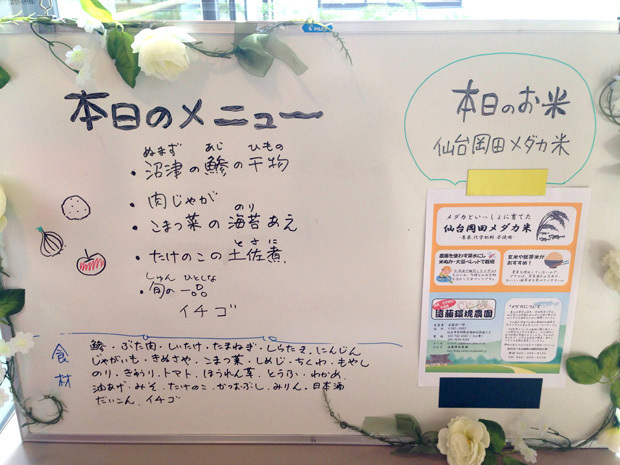 本日のメニュー
ぬまず あじ ひもの
・沼津の鯵の干物
・肉じゃが
のり
・こまつ菜の海苔あえ
とさに
・たけのこの土佐煮
しゅん ひとしな
・旬の一品
イチゴ
食材
鯵・ぶた肉・しいたけ・たまねぎ・しらたき・にんじん
じゃがいも・きぬさや・こまつ菜・しめじ・ちくわ・もやし
のり・きゅうり・トマト・ほうれん草・とうふ・わかめ
油あげ・みそ・たけのこ・かつおぶし・みりん・日本酒
だいこん・イチゴ
本日のお米
仙台岡田メダカ米
メダカといっしょに育てた
仙台岡田メダカ米
農薬を使わず深水にし
米ぬか・大豆ペレットで栽培
玄米や胚芽米が
おすすめ!
遠藤環境農園